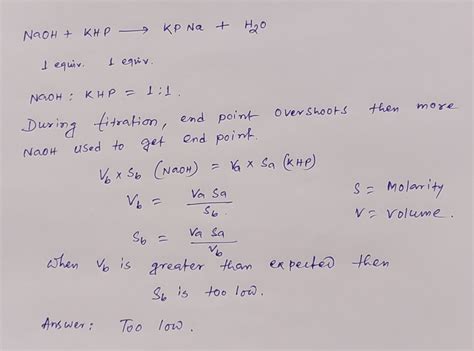 NaOH + KHP ⟶ KPNa + H₂O
1 equiv. 1 equiv.
NaOH : KHP = 1:1.
During titration, end point overshoots then more
NaOH used to get end point.
V_b × S_b (NaOH) = V_a × S_a (KHP)
V_b = V_a S_a / S_b.
S = Molarity
V = Volume.
S_b = V_a S_a / V_b
When V_b is greater than expected then
S_b is too low.
Answer: Too low.